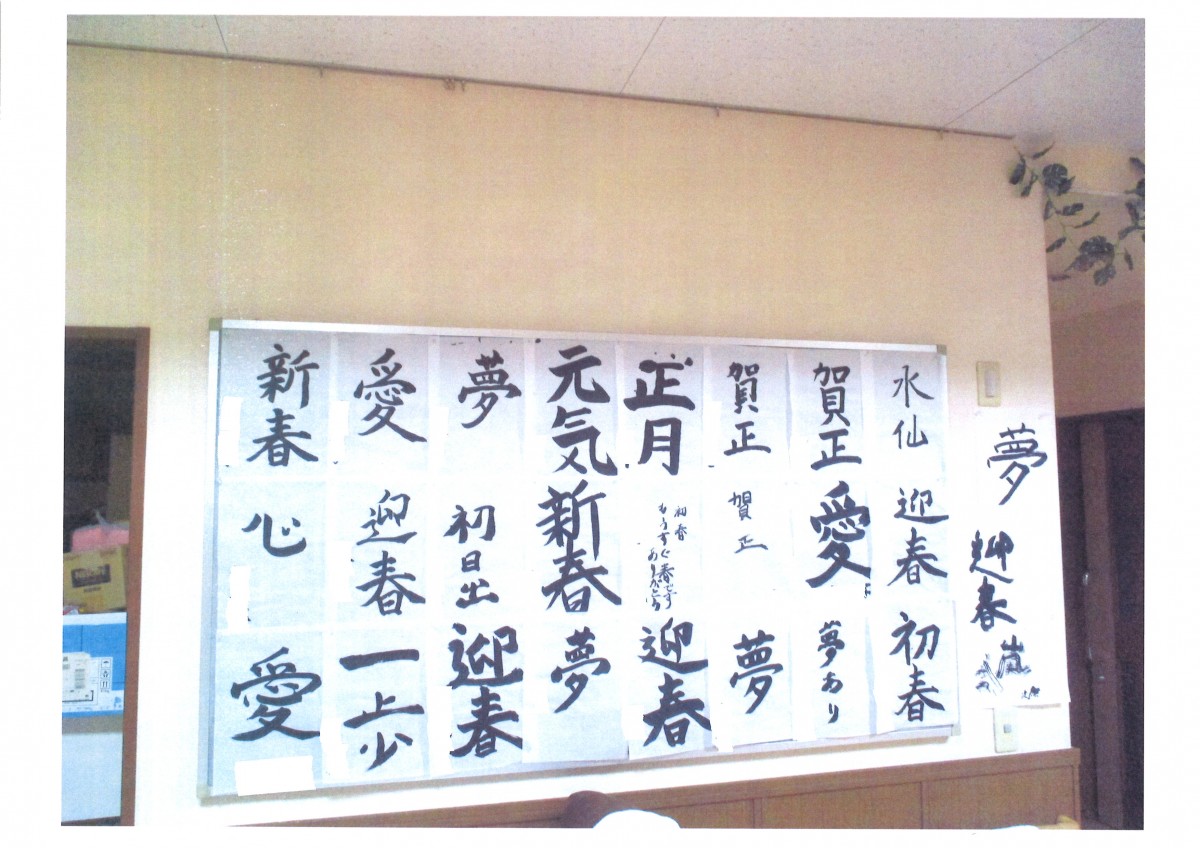 新春
愛
夢
元気
正月
賀正
賀正
水仙
心
迎春
初日出
新春
初春
もうすぐ春です
ありがとう
賀正
愛
迎春
愛
一歩
迎春
夢
迎春
夢
夢あり
初春
夢
迎春